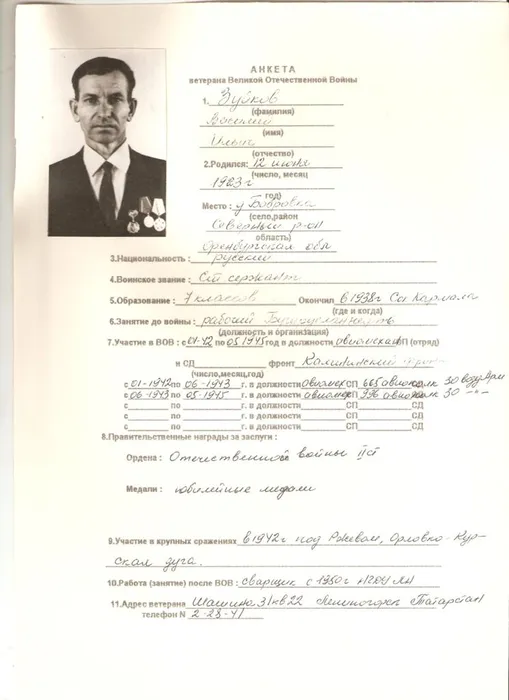 АНКЕТА
ветерана Великой Отечественной Войны
1. Зуйков
(фамилия)
Василий
(имя)
Ильич
(отчество)
2.Родился: 12 июня
(число, месяц
1923 г
год)
Место : у Бобровка
(село,район
Северный р-он
область)
Оренбургская обл
3.Национальность : русский
4.Воинское звание : Ст сержант
5.Образование : 7 классов Окончил в 1938г Сок Кармала
(где и когда)
6.Занятие до войны : рабочий
(должность и организация)
7.Участие в ВОВ : с 01-42 по 05 1945 год в должности авиамеханик СП (отряд)
и СД фронт Калининский фрон
(число,месяц,год)
с 01-1942 по 06-1943 г. в должности авиамех СП 665 авиаполк 30 возд Арм
с 06-1943 по 05-1945 г. в должности авиамех СП 996 авиаполк 30 -"-
с по г. в должности СП СД
с по г. в должности СП СД
8.Правительственные награды за заслуги :
Ордена : Отечественной войны II ст
Медали : юбилейные медали
9.Участие в крупных сражениях в 1942г под Ржевом, Орловко-Кур-
ская дуга.
10.Работа (занятие) после ВОВ : сварщик с 1950г
11.Адрес ветерана Шашина 31 кв 22 Лениногорск Татарстан
телефон N 2-28-41